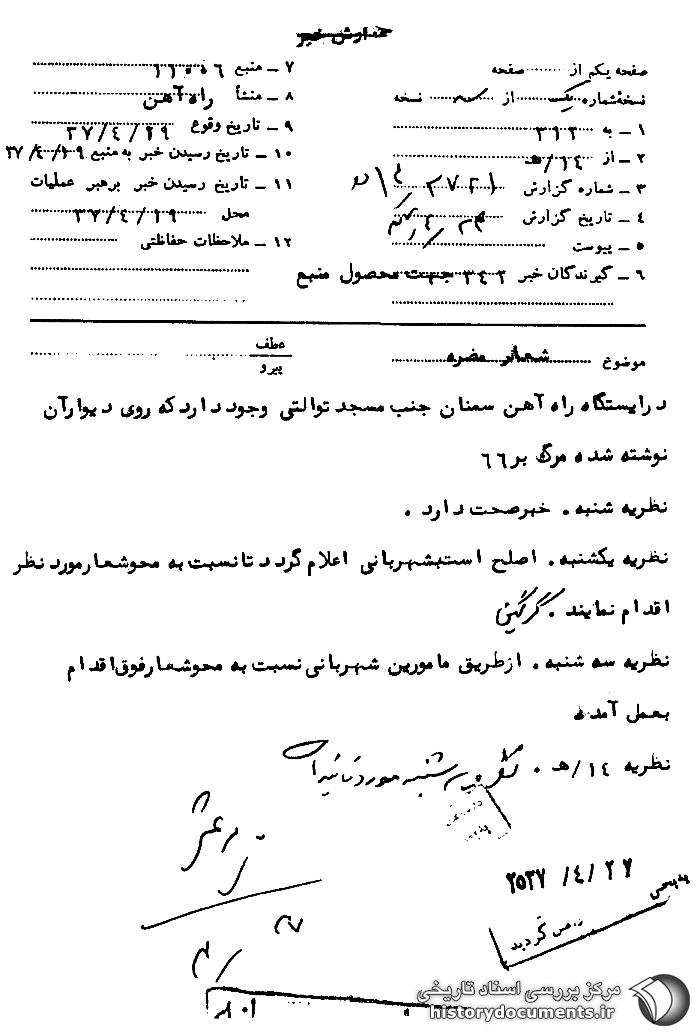 گزارش خبر
صفحه یکم از صفحه
نسخهٔ شماره یک از سه نسخه
۱ ــ به ۳۱۲
۲ ــ از ۱٤/هـ
۳ ــ شماره گزارش
٤ ــ تاریخ گزارش
۵ ــ پیوست
٦ ــ گیرندگان خبر ۳٤۲ جهت محصول منبع
۷ ــ منبع ۱۱۰۰٦
۸ ــ منشأ راه آهن
۹ ــ تاریخ وقوع ۳۷/٤/۱۹
۱۰ ــ تاریخ رسیدن خبر به منبع ۳۷/٤/۱۹
۱۱ ــ تاریخ رسیدن خبر برهبر عملیات
محل ۳۷/٤/۱۹
۱۲ ــ ملاحظات حفاظتی
موضوع شعائر مضره
عطف
پیرو
در ایستگاه راه آهن سمنان جنب مسجد توالتی وجود دارد که روی دیوار آن
نوشته شده مرگ بر ٦٦
نظریه شنبه. خبر صحت دارد.
نظریه یکشنبه. اصلح است بشهربانی اعلام گردد تا نسبت به محو شعار مورد نظر
اقدام نمایند.
نظریه سه شنبه. از طریق مامورین شهربانی نسبت به محو شعار فوق اقدام
بعمل آمده
نظریه ۱٤/هـ. شنبه مورد تائید است
۲۵۳۷ /٤/ ۲۷
گردید
مرکز بررسی اسناد تاریخی
historydocuments.ir